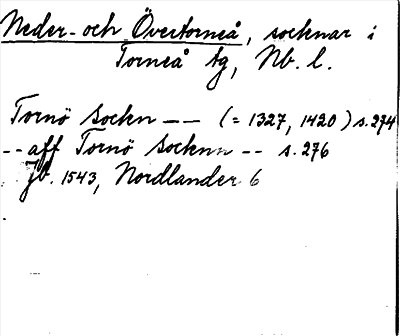 Neder- och Övertorneå, socknar i
Torneå tg, Nb. l.
Tornö Sockn -- (= 1327, 1420) s. 274
-- aff Tornö Socknn -- s. 276
jb. 1543, Nordlander 6